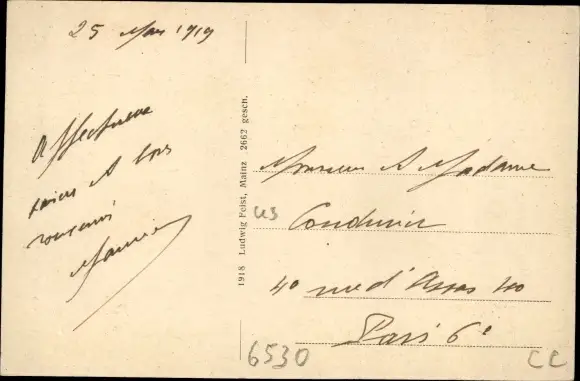 25 Mars 1919
Affectueux
baisers et bons
souvenirs
1918 Ludwig Feist, Mainz 2662 gesch.
Monsieur & Madame
us
40 rue d'Assas 40
Paris 6e
6530
CC